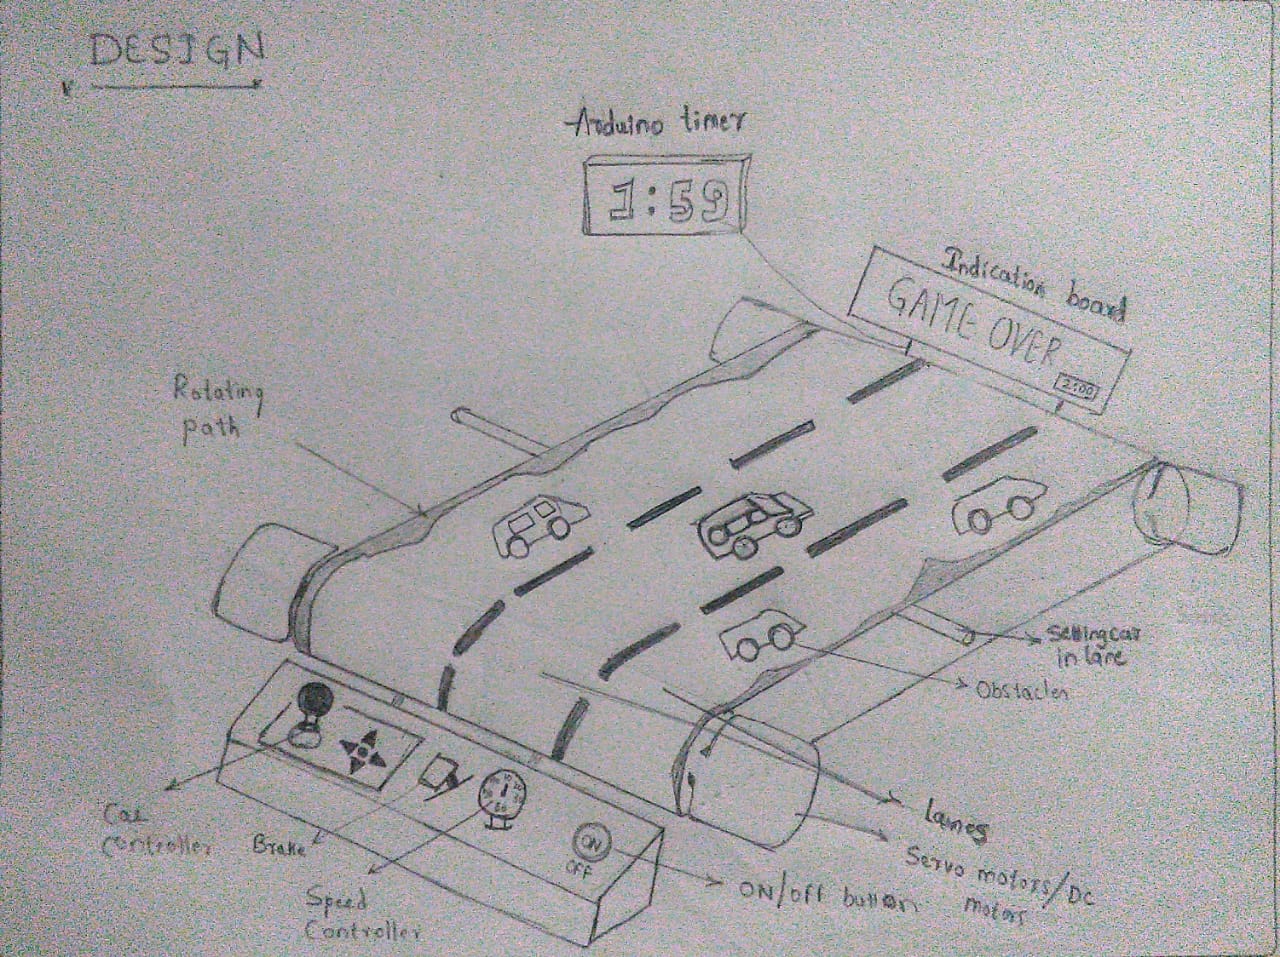 DESIGN
Arduino timer
1:59
Indication board
GAME OVER
2:00
Rotating
path
Setting car
in lane
Obstacles
Lanes
Servo motors/DC
motors
ON
OFF
ON/off button
Car
Controller
Brake
Speed
Controller